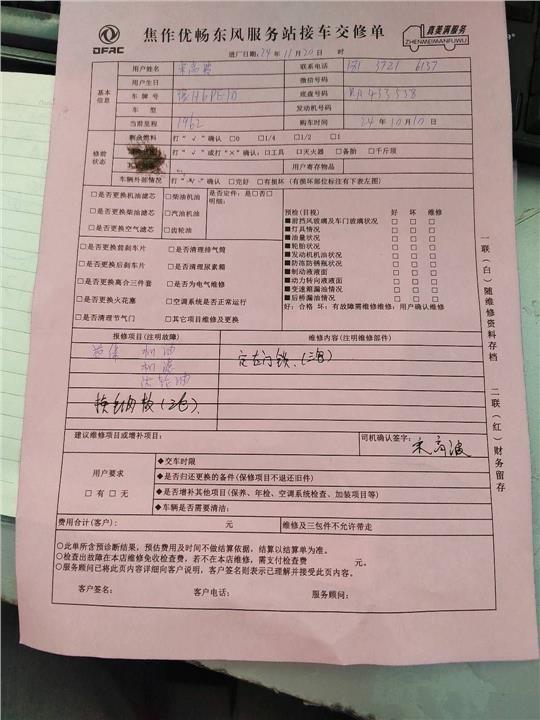 DFAC
焦作优畅东风服务站接车交修单
真美满服务
ZHENMEIMANFUWU
进厂日期:24年11月20日 时
基本信息
用户姓名 联系电话
用户生日 微信号码
车牌号 底盘号码
车型 发动机号码
当前里程 1962 购车时间 24年10月10日
修前状态
剩余燃料 打"√"确认 □0 □1/4 □1/2 □1
打"√"或打"×"确认:□工具 □灭火器 □备胎 □千斤顶
用户寄存物品
车辆外部情况 打"×"确认 □完好 □有损坏(有损坏部位标注有下表左图)
□是否更换机油滤芯 □柴油机油 是否定件:是□否□
□是否更换柴油滤芯 □汽油机油 明细:
□是否更换空气滤芯 □齿轮油
□是否更换前刹车片 □是否清理排气筒
□是否更换后刹车片 □是否清理尿素箱
□是否更换离合三件套 □是否为电气维修
□是否更换火花塞 □空调系统是否正常运行
□是否清理节气门 □其它项目维修及更换
预检(目视) 好 坏 维修
■前挡风玻璃及车门玻璃状况 □ □ □
■灯具情况 □ □ □
■油量状况 □ □ □
■轮胎状况 □ □ □
■发动机机油状况 □ □ □
■防冻防锈瓶状况 □ □ □
■制动液液面 □ □ □
■动力转向液液面 □ □ □
■变速箱漏油情况 □ □ □
■后桥漏油情况 □ □ □
好:合格 坏:有故障需维修维修:用户确认维修
报修项目(注明故障) 维修内容(注明维修部件)
机油
机滤
建议维修项目或增补项目: 司机确认签字:
用户要求
□有□无
◆交车时限
◆是否归还更换的备件(保修项目不退还旧件)
◆是否增补其他项目(保养、年检、空调系统检查、加装项目等)
◆车辆是否需要清洁:
费用合计(客户): 元 维修及三包件不允许带走
○此单所含预诊断结果,预估费用及时间不做结算依据,结算以结算单为准。
○检查出故障在本店维修免收检查费,若不在本店维修,需支付检查费 元。
○服务顾问已将此页内容详细向客户说明,客户签名则表示已理解并接受此页内容。
客户签名: 客户电话: 服务顾问:
一联(白)随维修资料存档
二联(红)财务留存